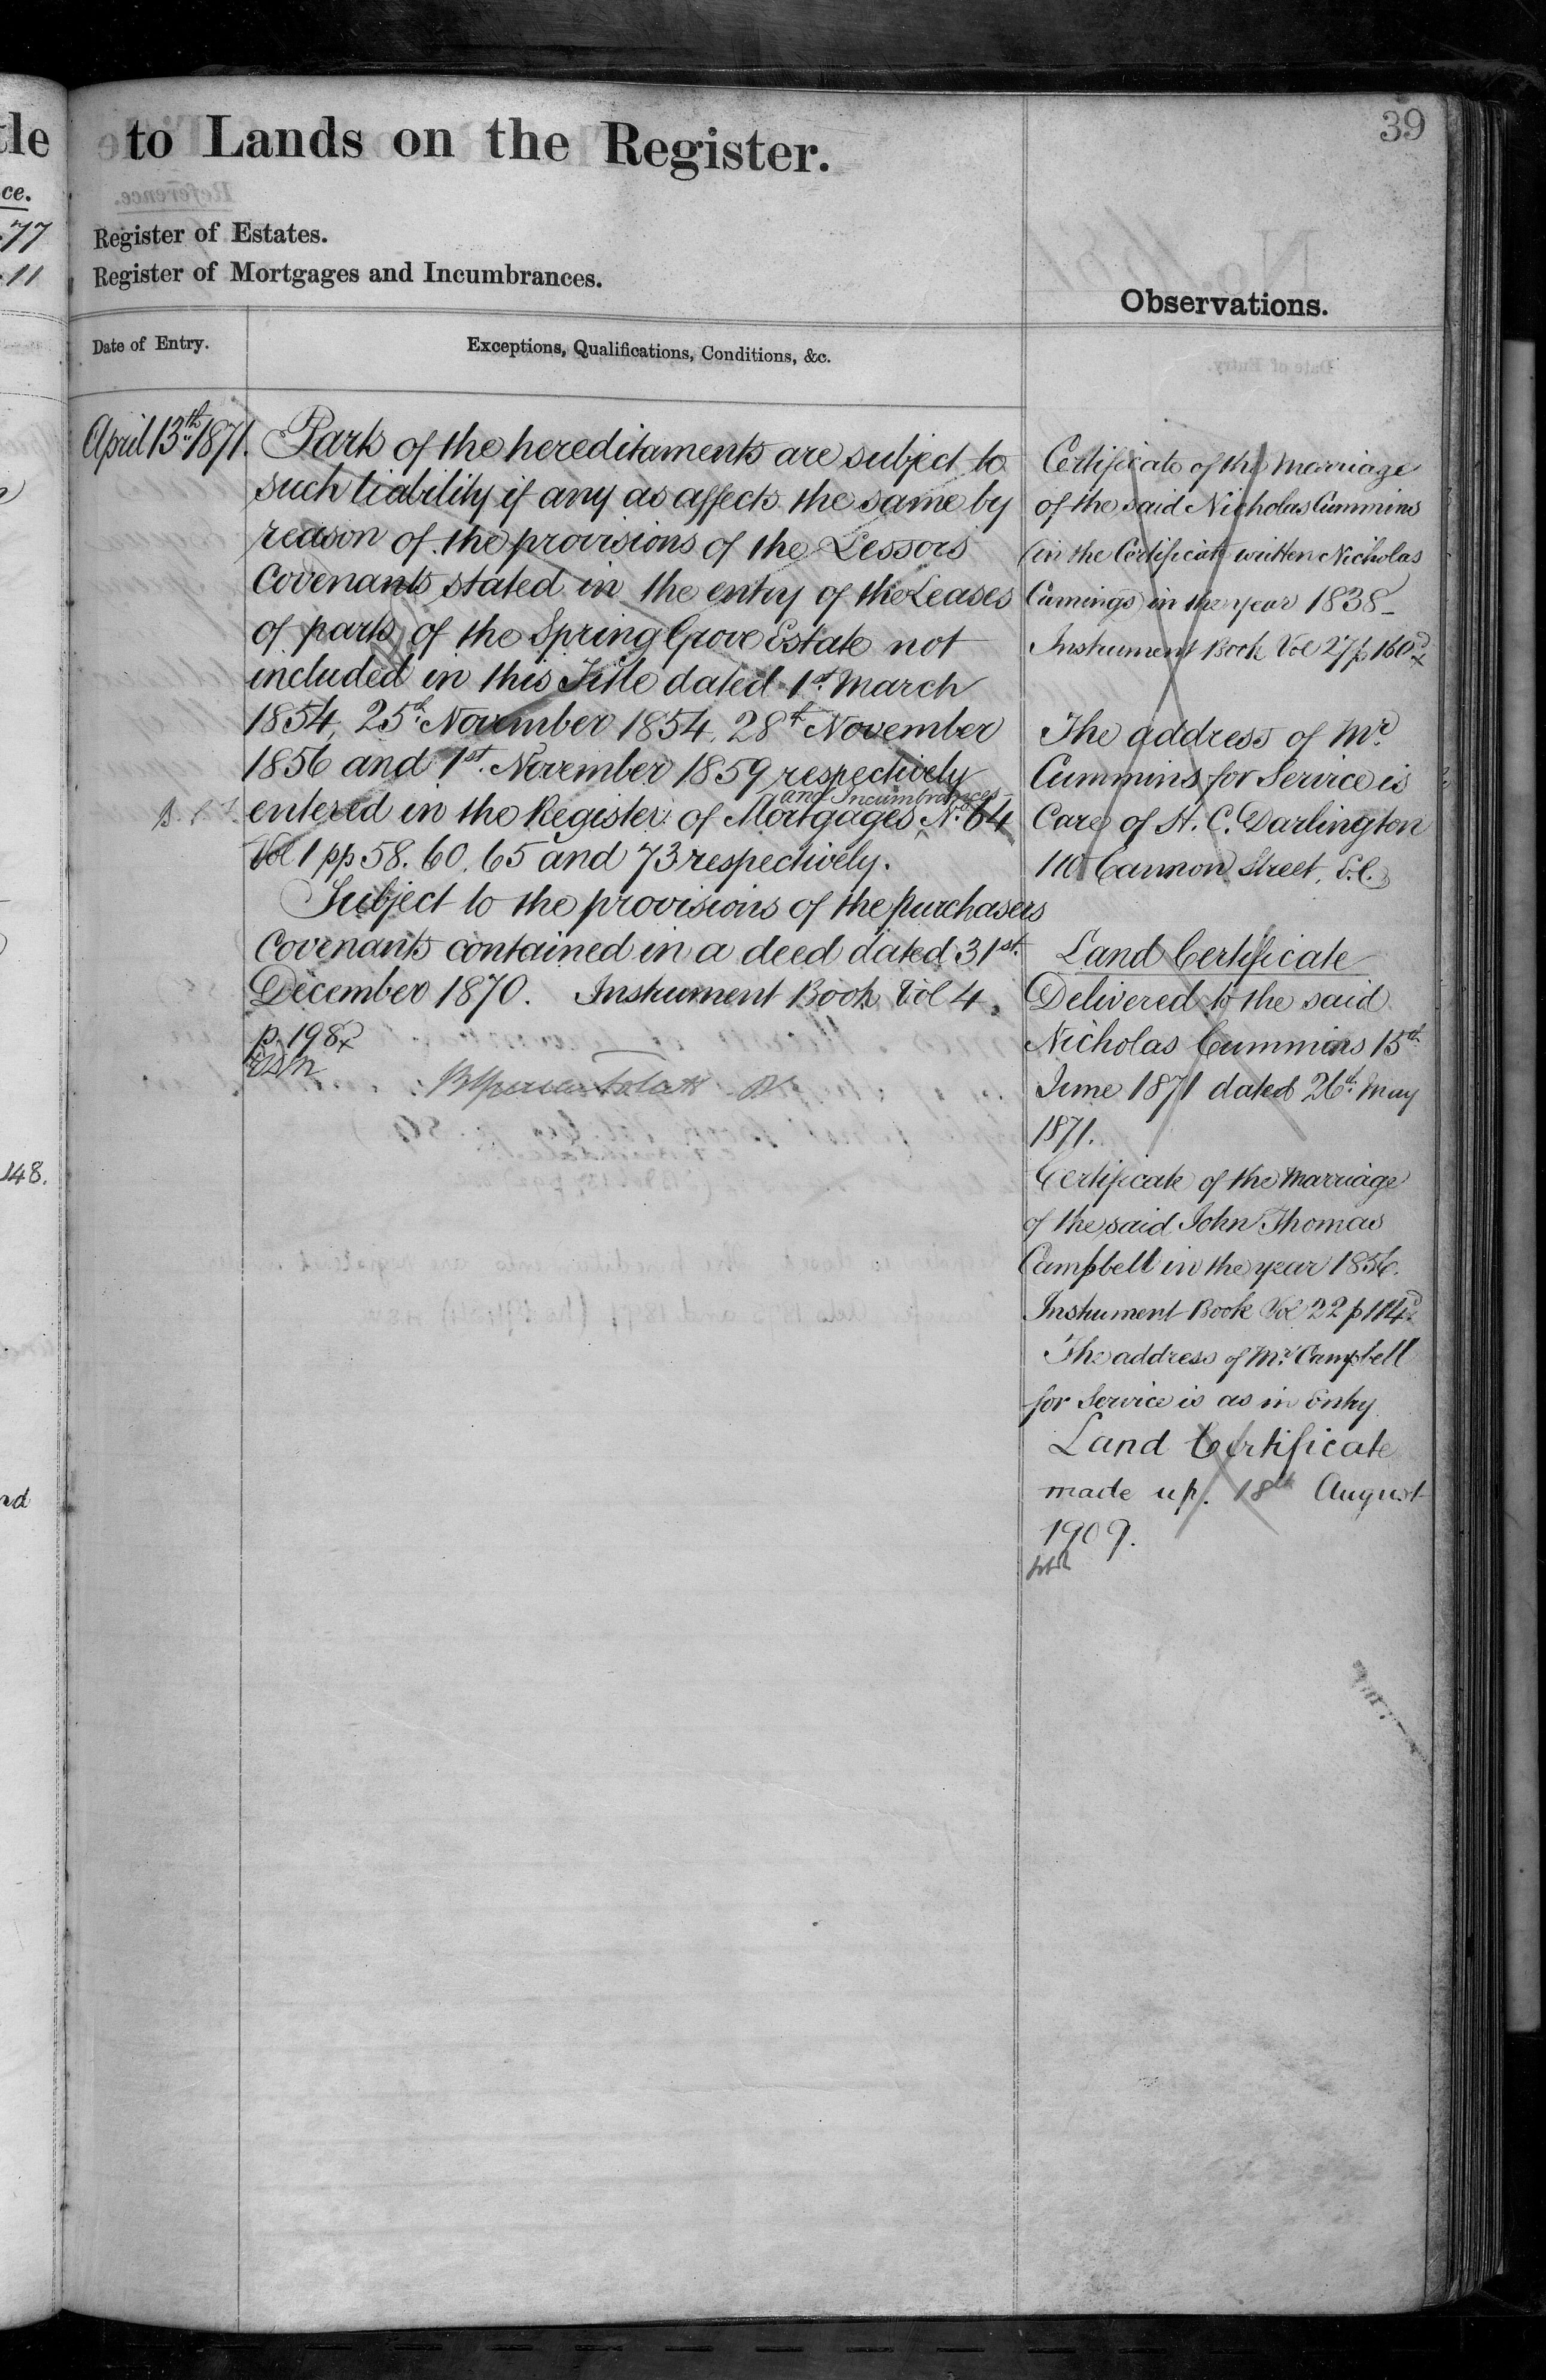 39
tle
to Lands on the Register.
ce.
77
11
Register of Estates.
Register of Mortgages and Incumbrances.
Observations.
Date of Entry.
Exceptions, Qualifications, Conditions, &c.
April 13th 1871.
Parts of the hereditaments are subject to
such liability if any as affects the same by
reason of the provisions of the Lessors
Covenants stated in the entry of the Leases
of parts of the Spring Grove Estate not
included in this Title dated 1st March
1854, 25th November 1854, 28th November
1856 and 1st November 1859 respectively
and Incumbrances
entered in the Register of Mortgages No. 64
Vol 1 pp 58. 60. 65 and 73 respectively.
Subject to the provisions of the purchasers
Covenants contained in a deed dated 31st
December 1870. Instrument Book Vol 4.
p. 198
Certificate of the Marriage
of the said Nicholas Cummins
(in the Certificate written Nicholas
Cumings) in the year 1838_
Instrument Book Vol 27 p 160
The address of Mr
Cummins for Service is
Care of St. C. Darlington
110 Cannon Street, E.C.
Land Certificate
Delivered to the said
Nicholas Cummins 15th
June 1871 dated 26th May
1871.
Certificate of the Marriage
of the said John Thomas
Campbell in the year 1856.
Instrument Book Vol 22 p 114
The address of Mr Campbell
for Service is as in Entry
Land Certificate
made up. 18th August
1909.
148.
nd